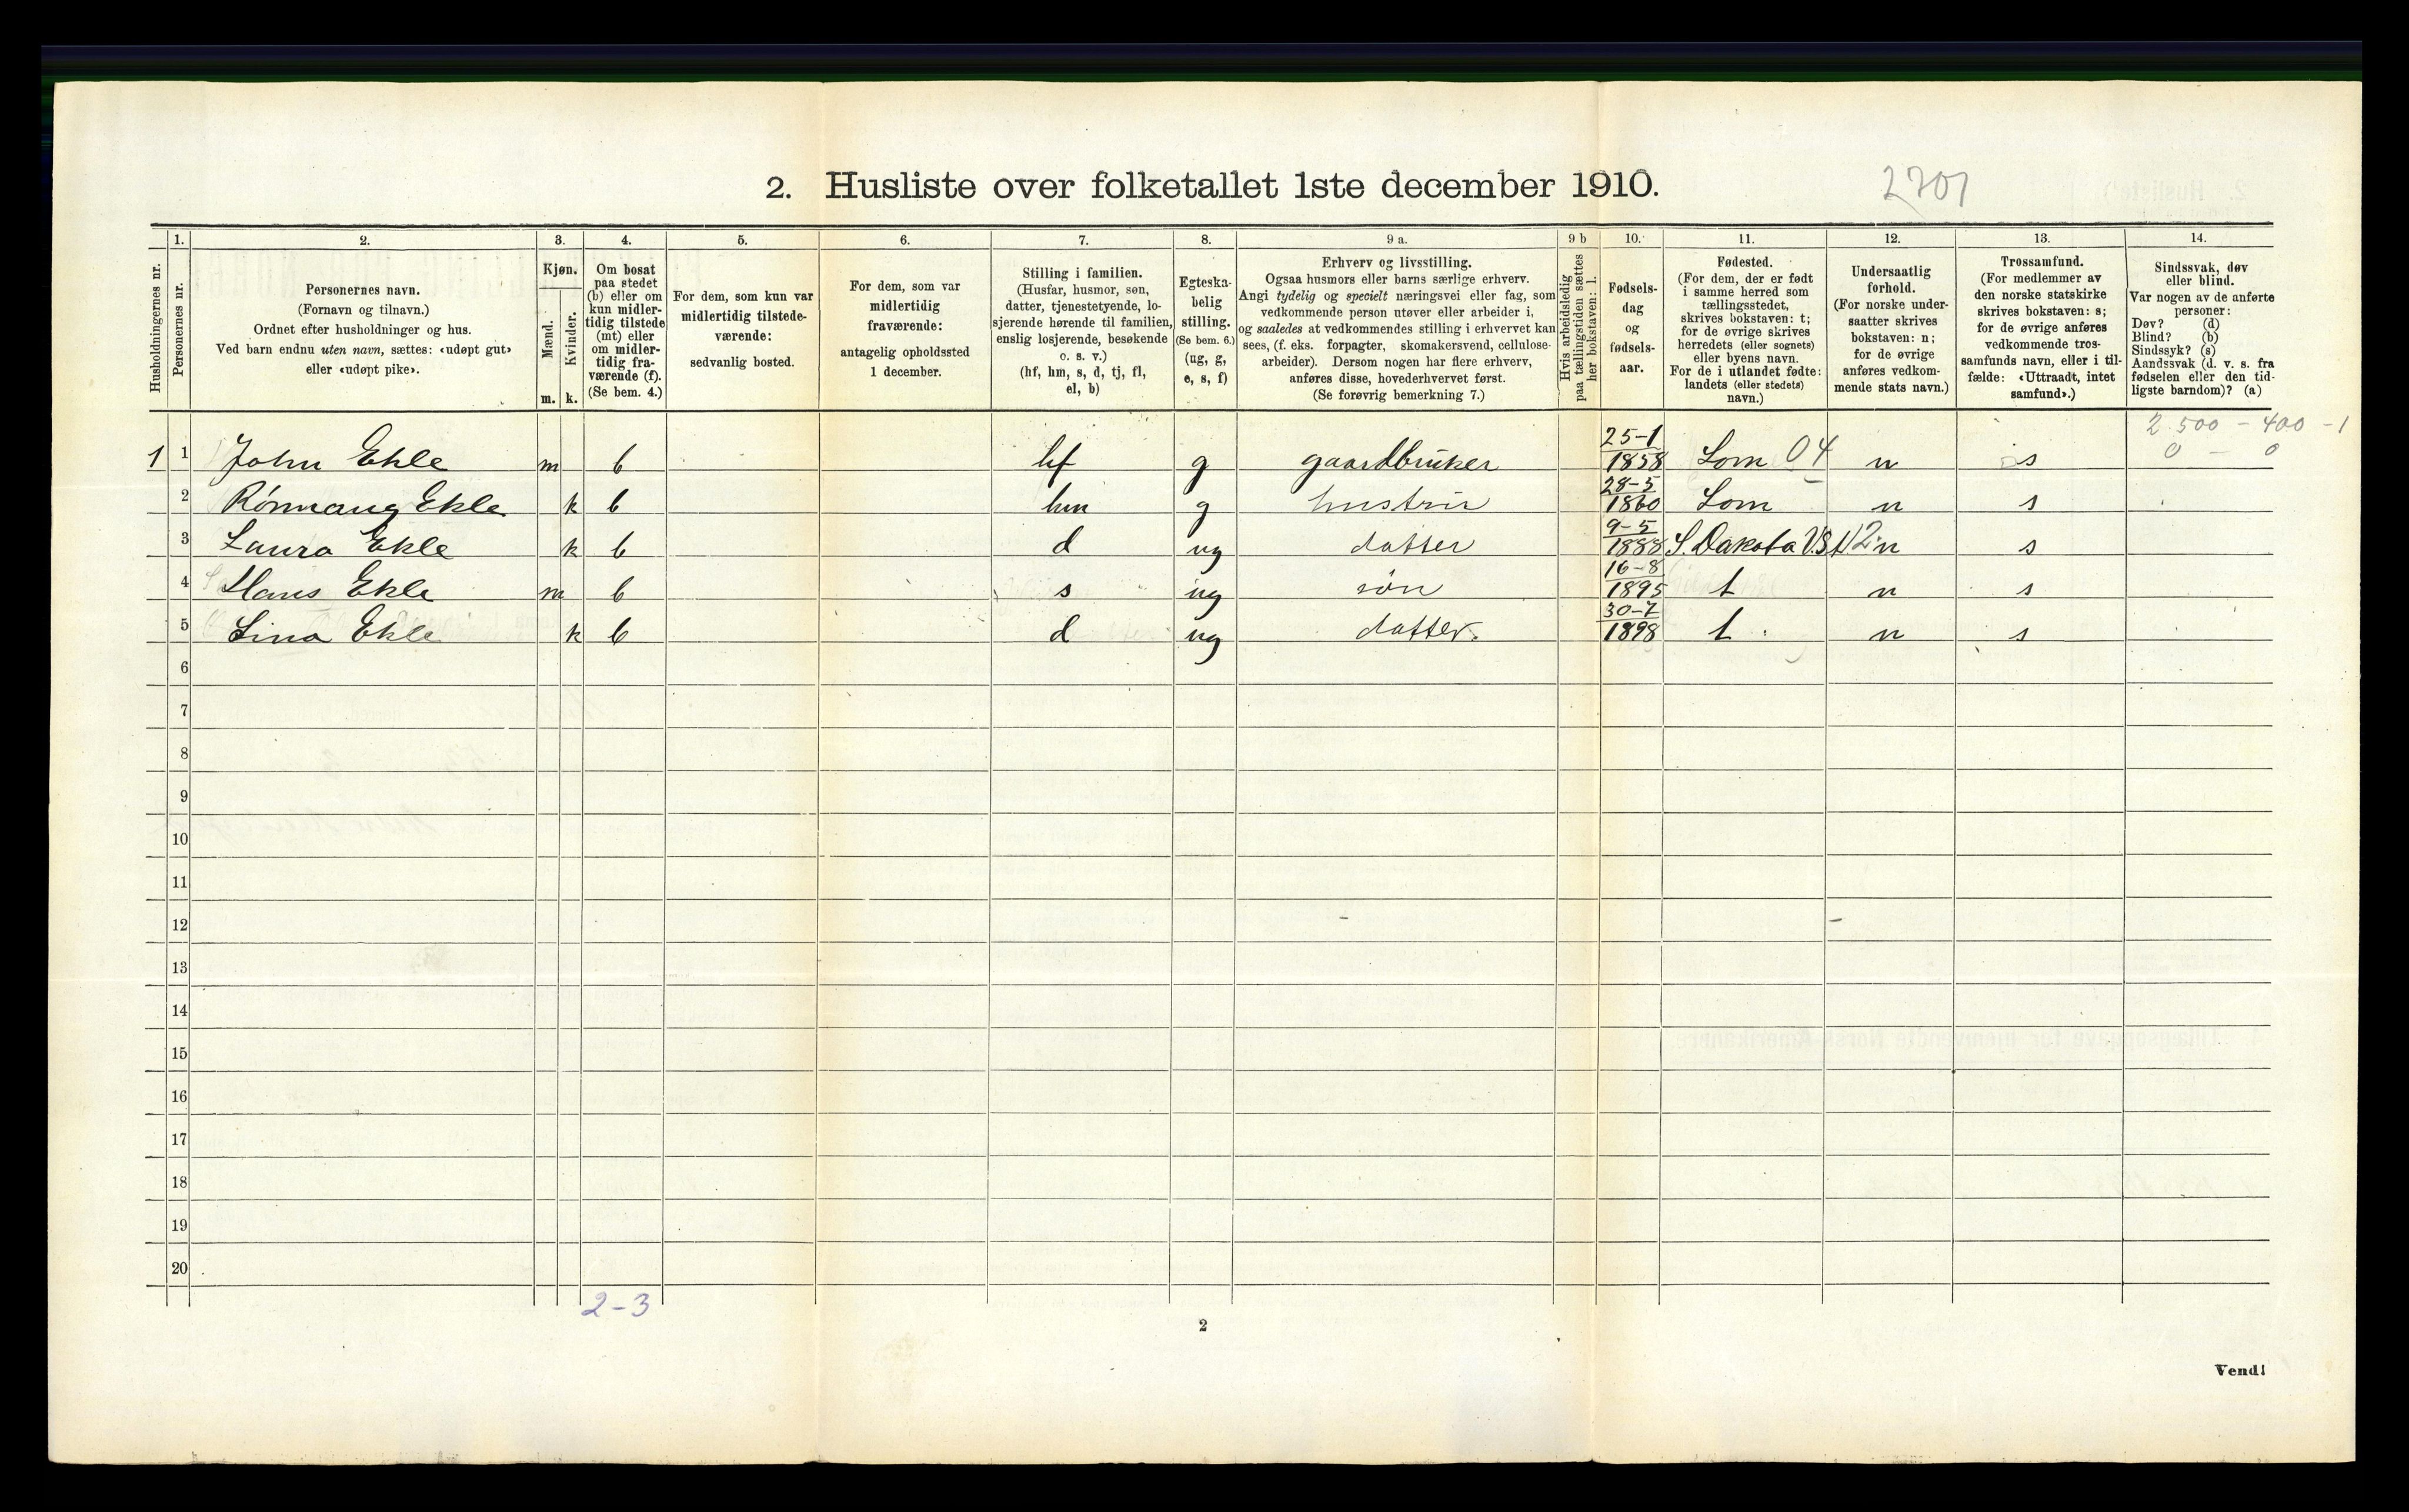 2. Husliste over folketallet 1ste december 1910. 2701
Husholdningernes nr.
1. Personernes nr.
2. Personernes navn. (Fornavn og tilnavn.) Ordnet efter husholdninger og hus. Ved barn endnu uten navn, sættes: «udøpt gut» eller «udøpt pike».
3. Kjøn. Mænd. m. Kvinder. k.
4. Om bosat paa stedet (b) eller om kun midlertidig tilstede (mt) eller om midlertidig fraværende (f). (Se bem. 4.)
5. For dem, som kun var midlertidig tilstedeværende: sedvanlig bosted.
6. For dem, som var midlertidig fraværende: antagelig opholdssted 1 december.
7. Stilling i familien. (Husfar, husmor, søn, datter, tjenestetyende, losjerende hørende til familien, enslig losjerende, besøkende o. s. v.) (hf, hm, s, d, tj, fl, el, b)
8. Egteskabelig stilling. (Se bem. 6.) (ug, g, e, s, f)
9 a. Erhverv og livsstilling. Ogsaa husmors eller barns særlige erhverv. Angi tydelig og specielt næringsvei eller fag, som vedkommende person utøver eller arbeider i, og saaledes at vedkommendes stilling i erhvervet kan sees, (f. eks. forpagter, skomakersvend, cellulosearbeider). Dersom nogen har flere erhverv, anføres disse, hovederhvervet først. (Se forøvrig bemerkning 7.)
9 b Hvis arbeidsledig paa tællingstiden sættes her bokstaven: l.
10. Fødselsdag og fødselsaar.
11. Fødested. (For dem, der er født i samme herred som tællingsstedet, skrives bokstaven: t; for de øvrige skrives herredets (eller sognets) eller byens navn. For de i utlandet fødte: landets (eller stedets) navn.)
12. Undersaatlig forhold. (For norske undersaatter skrives bokstaven: n; for de øvrige anføres vedkommende stats navn.)
13. Trossamfund. (For medlemmer av den norske statskirke skrives bokstaven: s; for de øvrige anføres vedkommende trossamfunds navn, eller i tilfælde: «Uttraadt, intet samfund».)
14. Sindssvak, døv eller blind. Var nogen av de anførte personer: Døv? (d) Blind? (b) Sindssyk? (s) Aandssvak (d. v. s. fra fødselen eller den tidligste barndom)? (a)
2.500 - 400 - 1
0 - 0
1 1 John Ekle m b hf g gaardbruker 25-1 1858 Lom 04 n s
2 Rønnaug Ekle k b hm g hustru 28-5 1860 Lom n s
3 Laura Ekle k b d ug datter 9-5 1888 S. Dakota U.S. 12 n s
4 Hans Ekle m b s ug søn 16-8 1895 t n s
5 Lina Ekle k b d ug datter. 30-7 1898 t. n s
6
7
8
9
10
11
12
13
14
15
16
17
18
19
20
2-3
2
Vend!